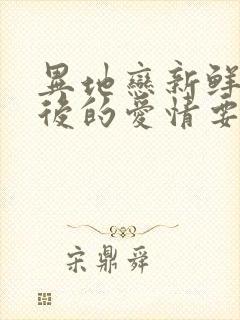 異地戀新鮮
後的愛情要
宋鼎舜